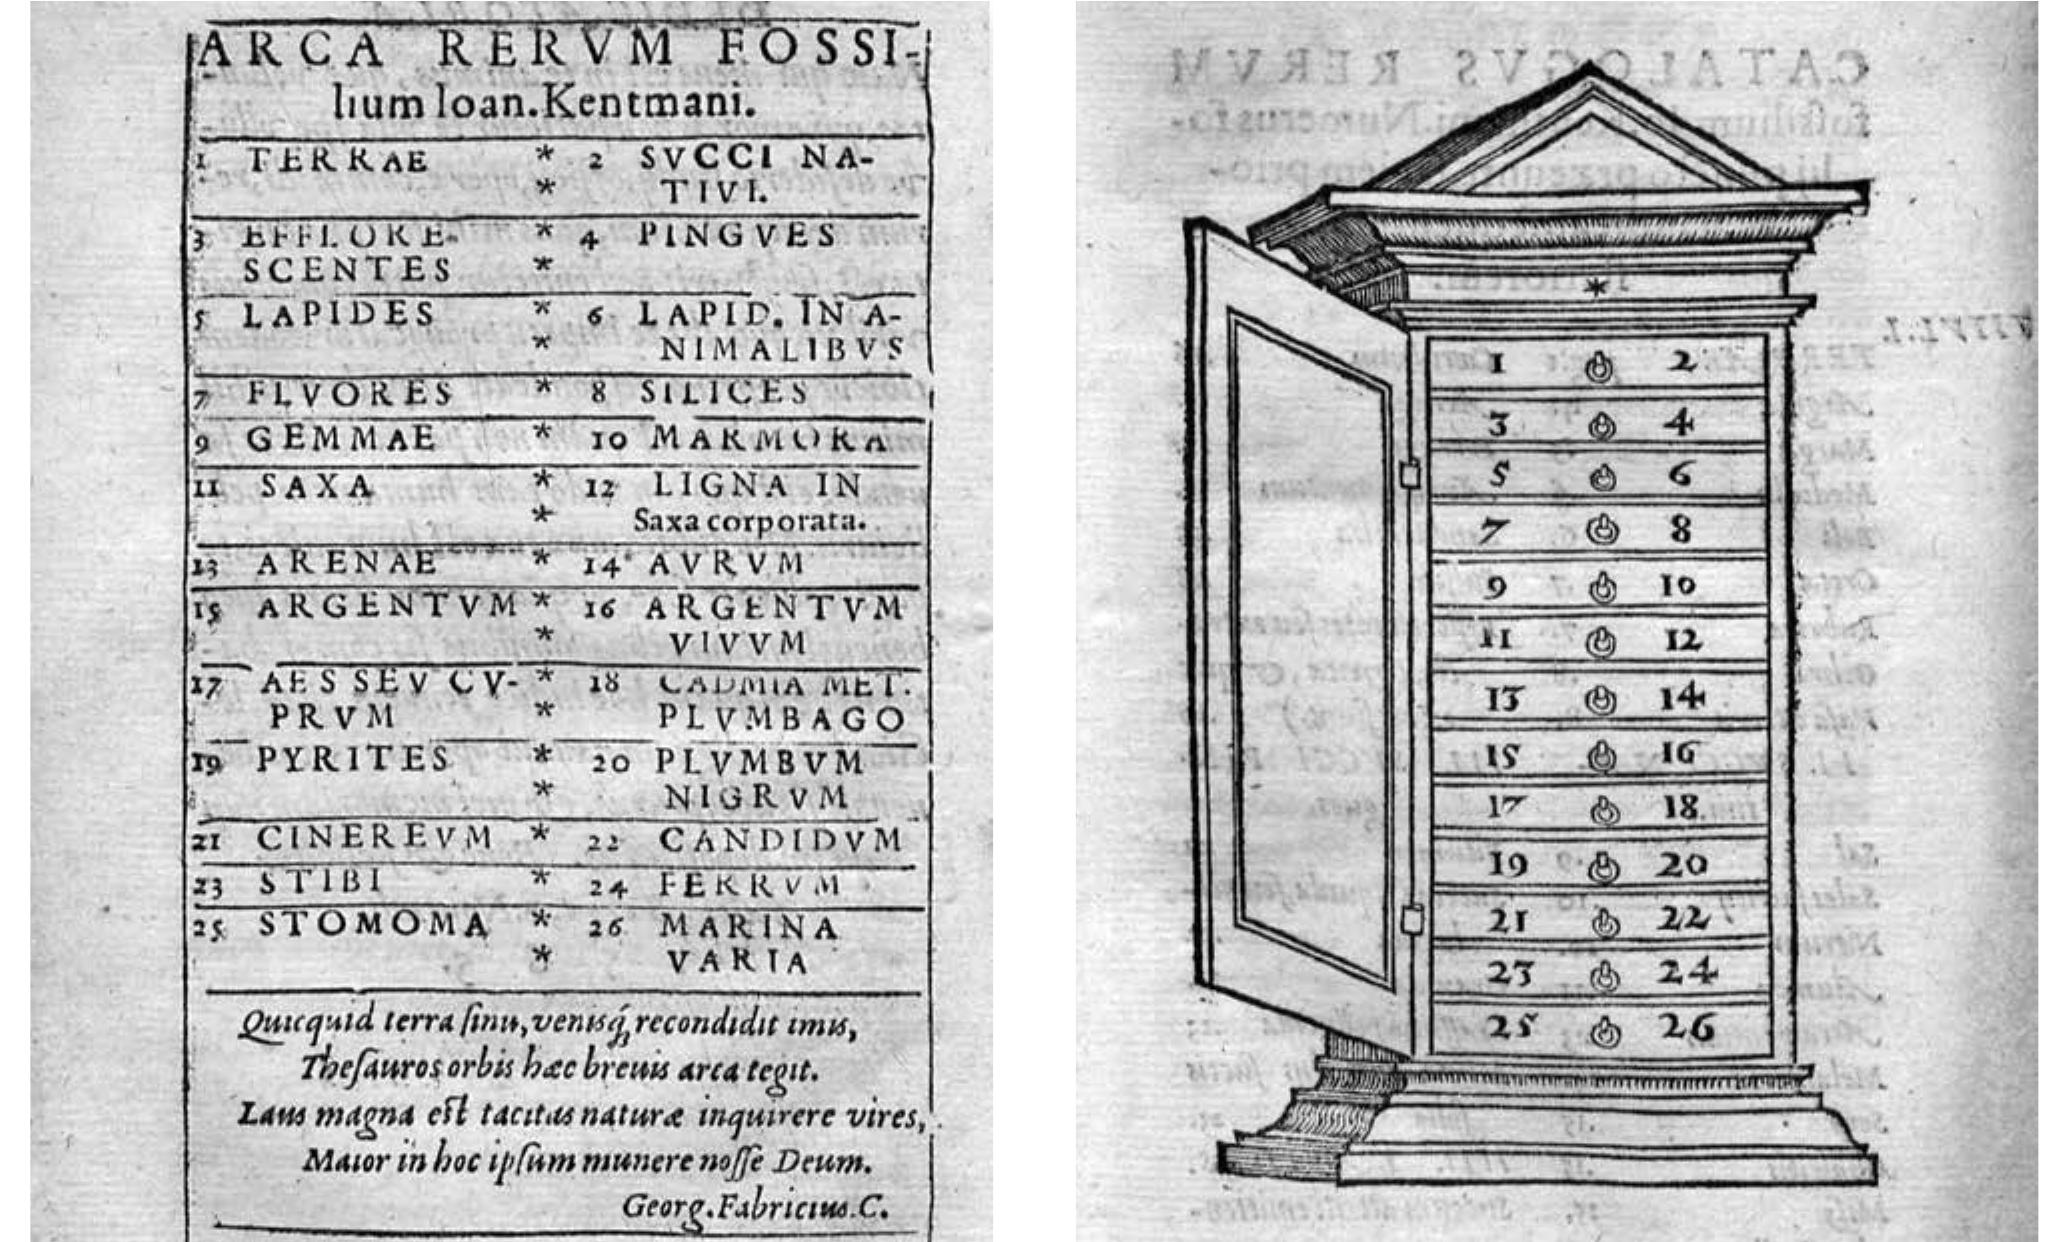 ARCA RERVM FOSSI-
lium Ioan. Kentmani.
1 TERRAE * 2 SVCCI NA-
* TIVI.
3 EFFLORE- * 4 PINGVES
SCENTES *
5 LAPIDES * 6 LAPID. IN A-
* NIMALIBVS
7 FLVORES * 8 SILICES
9 GEMMAE * 10 MARMORA
11 SAXA * 12 LIGNA IN
* Saxa corporata.
13 ARENAE * 14 AVRVM
15 ARGENTVM * 16 ARGENTVM
* VIVVM
17 AES SEV CV- * 18 CADMIA MET.
PRVM * PLVMBAGO
19 PYRITES * 20 PLVMBVM
* NIGRVM
21 CINEREVM * 22 CANDIDVM
23 STIBI * 24 FERRVM
25 STOMOMA * 26 MARINA
* VARIA
Quicquid terra sinu, venisq́; recondidit imis,
Thesauros orbis hæc breuis arca tegit.
Laus magna est tacitas naturæ inquirere vires,
Maior in hoc ipsum munere nosse Deum.
Georg. Fabricius. C.
*
1 2
3 4
5 6
7 8
9 10
11 12
13 14
15 16
17 18
19 20
21 22
23 24
25 26